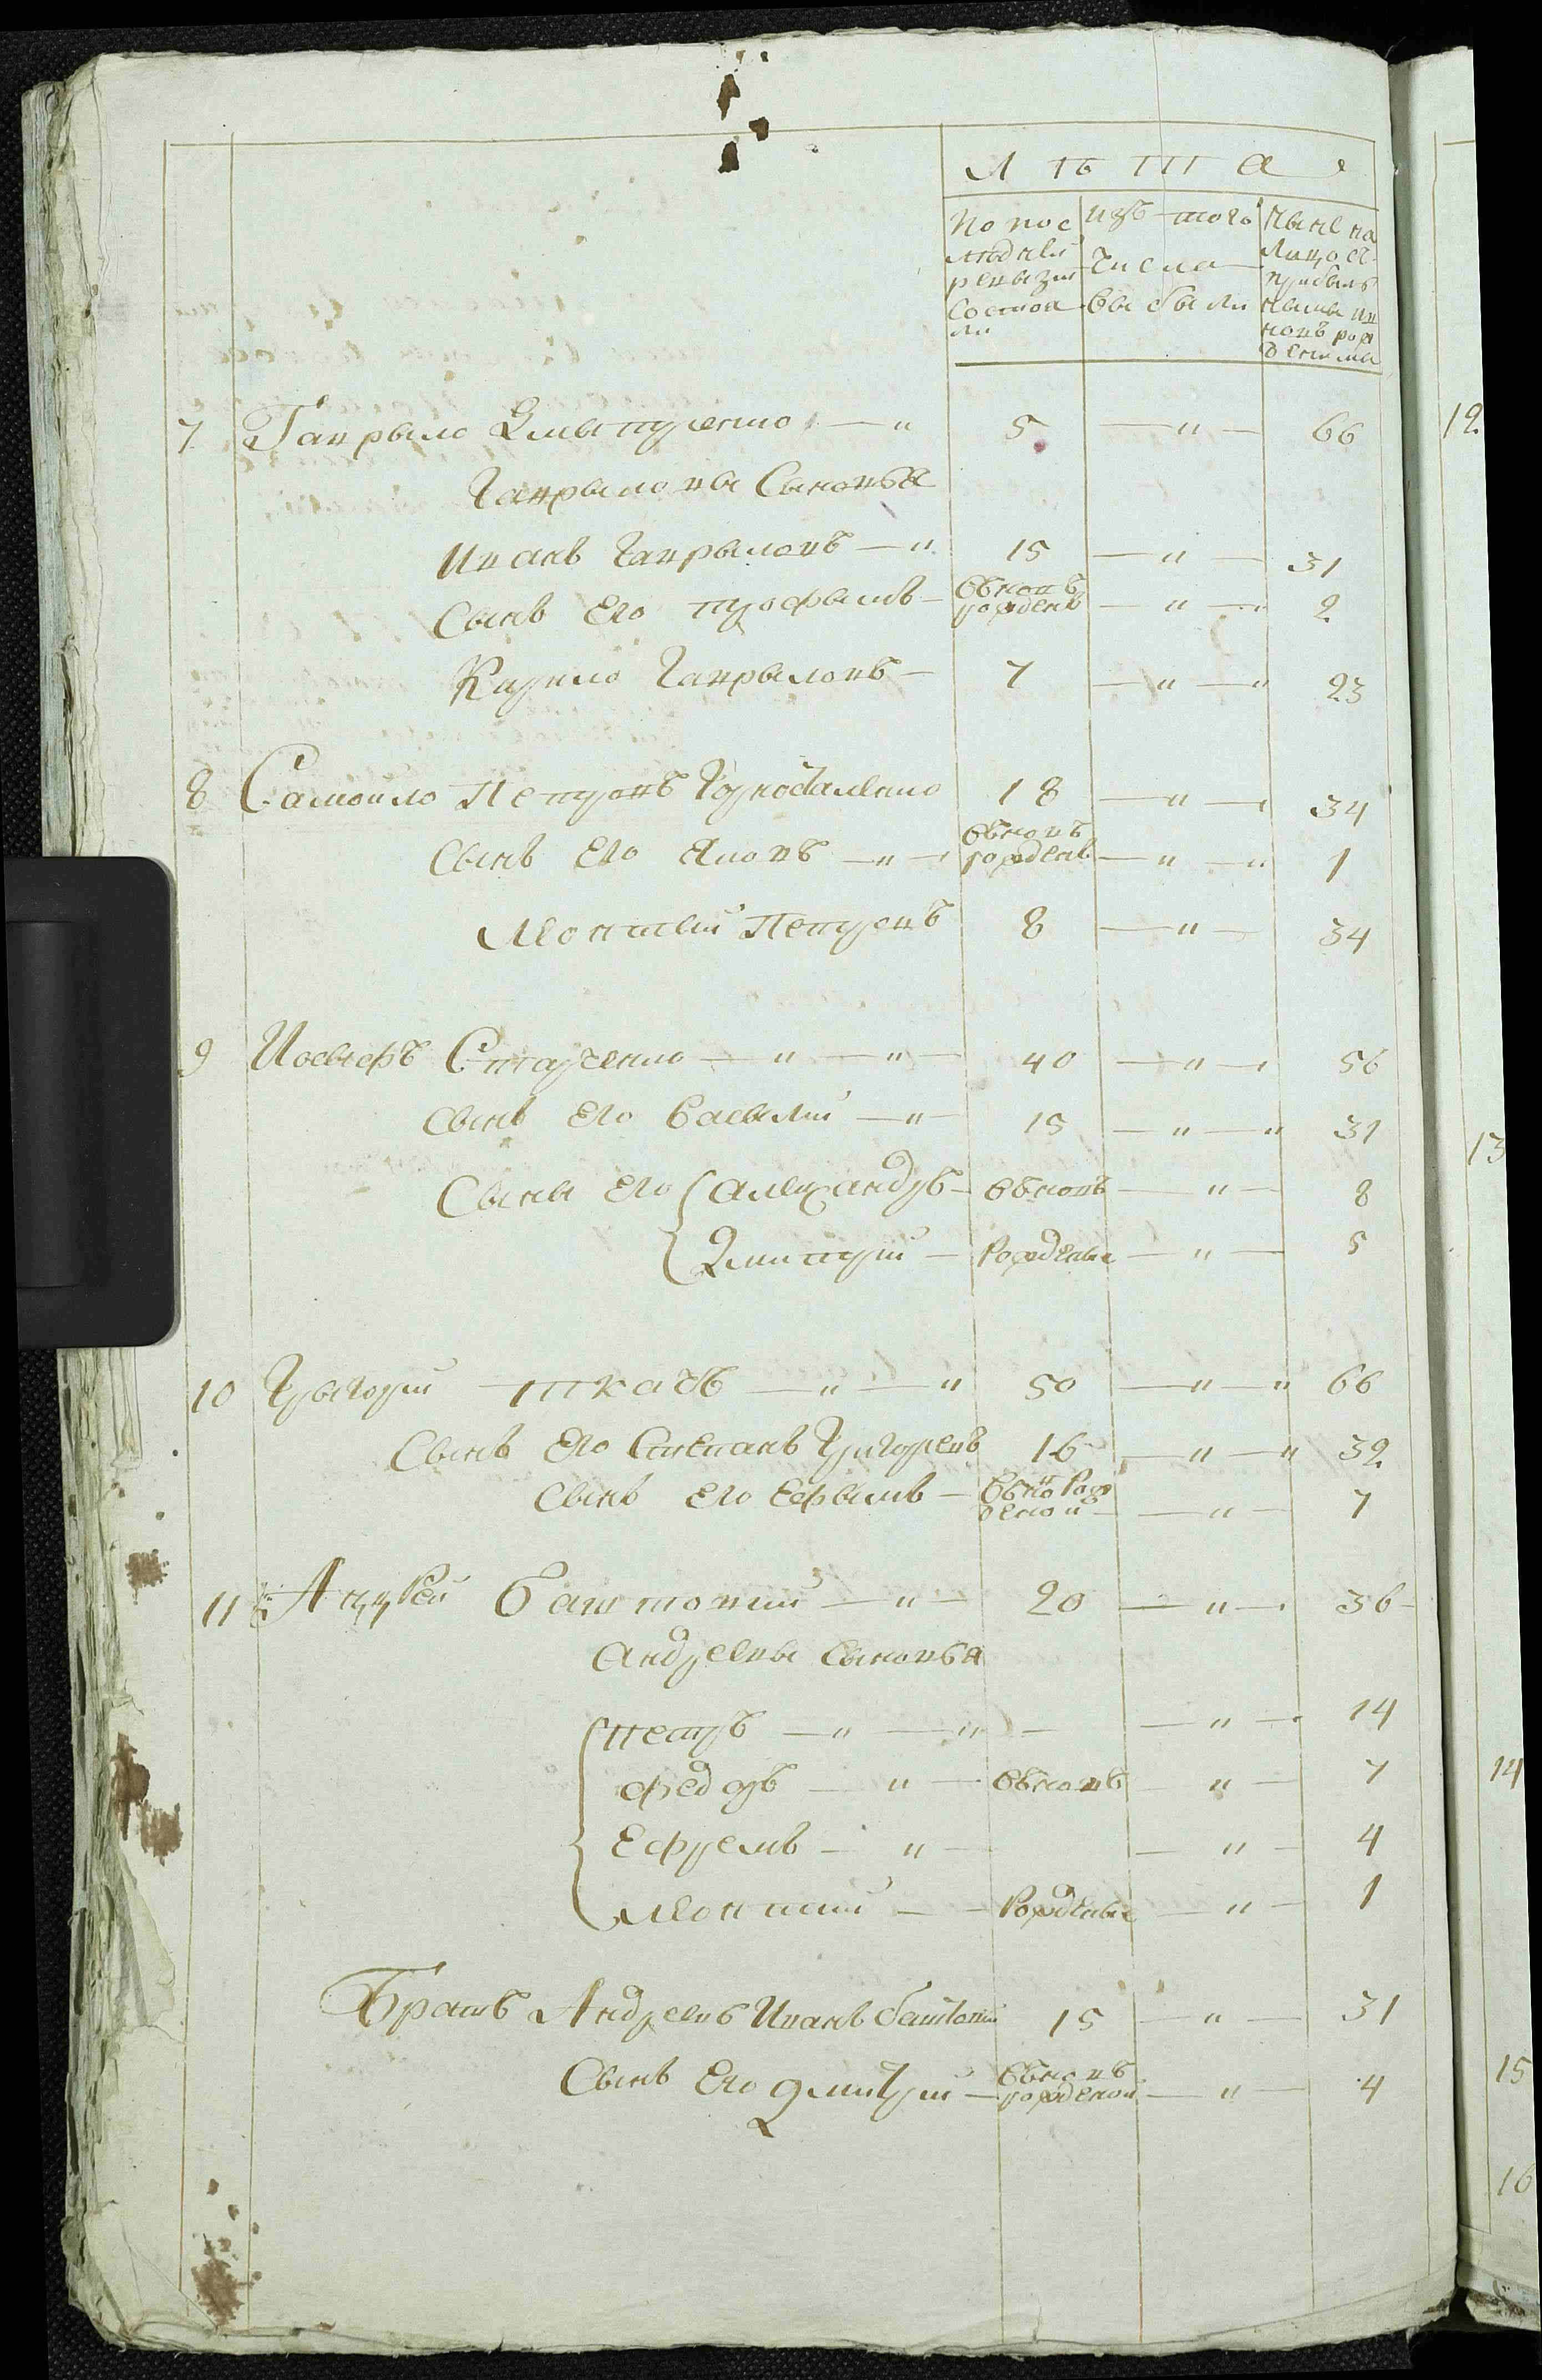 Лѣта
По пос лѣдней ревизіи состоя ли
изъ того числа выбыли
Ныне на лицо съ прибыль ными и в новъ рож денными
7 Гаврыло Дмытренко — " 5 — " — 66
Гаврыловы Сыновья
Иванъ Гаврыловъ — " 15 — " — 31
Сынъ Его трофымъ — вѣновъ рожденъ — " — 2
Карпо Гаврыловъ — 7 — " — " 23
8 Самойло Петровъ 18 — " — 34
Сынъ Его Яковъ — " — вѣновъ рожденъ — " — " 1
Леонтей Петровъ 8 — " — 34
9 Иосыфъ Старченко — " — " — 40 — " — 56
Сынъ Его Васылий — " — 15 — " — " 31
Сыны Его Александръ — вѣновъ — " — 8
Дмитрий — Рожденые — " — 5
10 Грыгорий ткачъ — " — " 50 — " — " 66
Сынъ Его Степанъ Григорьевъ 16 — " — " 32
Сынъ Его Ефымъ — вѣновъ Рож деной — " — 7
11 Андрей Баштовий — " — 20 — " — 36
Андреевы Сыновья
Петръ — " — " — — " — 14
Федоръ — " — вѣновъ — " — 7
Ефремъ — " — — " — 4
Леонтий — — Рожденые — " — 1
Братъ Андреевъ Иванъ баштовий 15 — " — 31
Сынъ Его Дмитрий — вѣновъ рожденой — " — 4
12
13
14
15
16